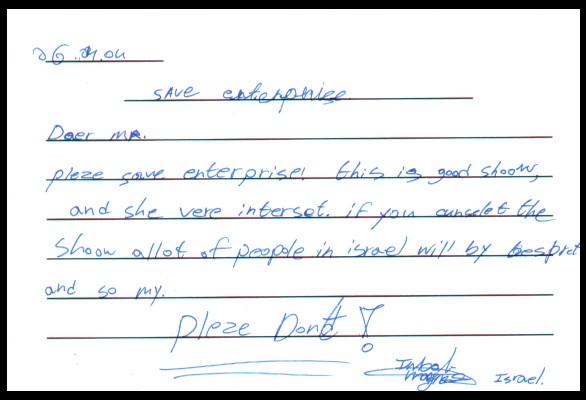 save enterprise
Deer mr.
pleze save enterprise! this is good shoow,
and she vere interset. if you cunselet the
shoow allot of people in israel will by
and so my.
Pleze Dont!
Israel.